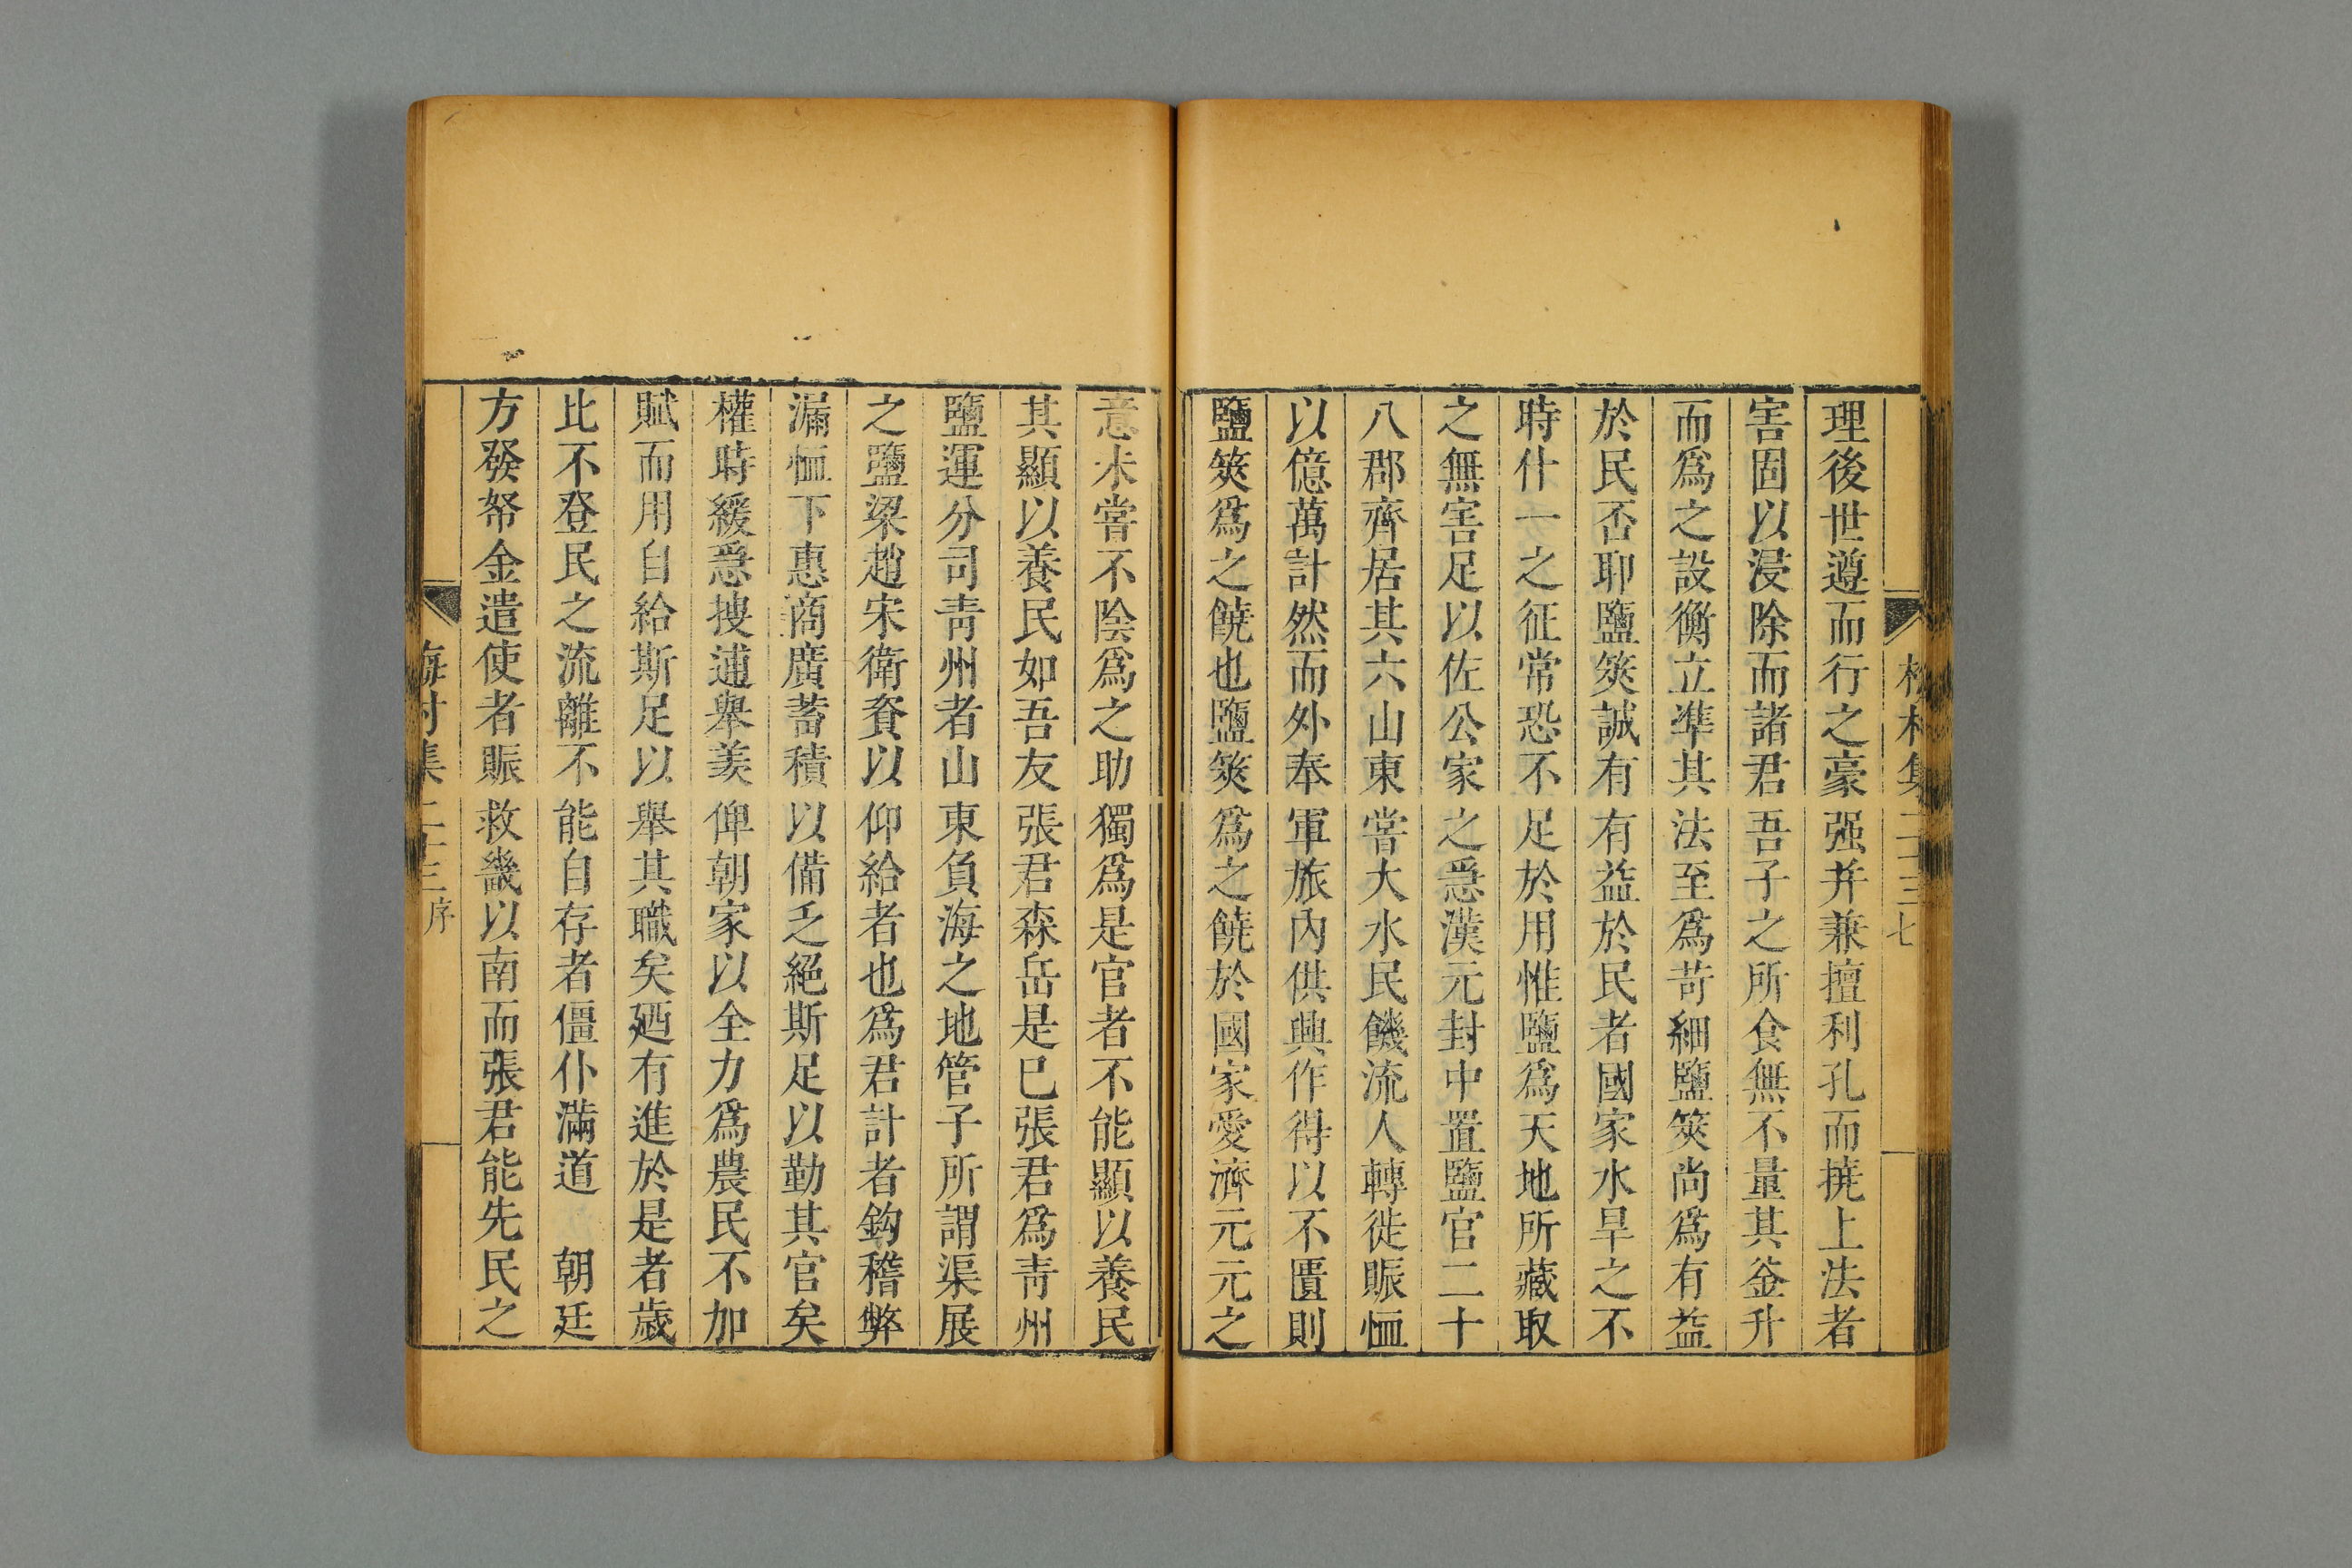 集二十三 七
理後世遵而行之豪强并兼擅利孔而撓上法者
害固以浸除而諸君吾子之所食無不量其釜升
而爲之設衡立準其法至爲苛細鹽筴尚爲有益
於民否耶鹽筴誠有有益於民者國家水旱之不
時什一之征常恐不足於用惟鹽爲天地所藏取
之無害足以佐公家之急漢元封中置鹽官二十
八郡齊居其六山東嘗大水民饑流人轉徙賑恤
以億萬計然而外奉軍旅內供興作得以不匱則
鹽筴爲之饒也鹽筴爲之饒於國家愛濟元元之
意未嘗不陰爲之助獨爲是官者不能顯以養民
其顯以養民如吾友張君森岳是已張君爲靑州
鹽運分司靑州者山東負海之地管子所謂渠展
之鹽梁趙宋衛餈以仰給者也爲君計者鈎稽弊
漏恤下惠商廣蓄積以備乏絕斯足以勤其官矣
權時緩急捜逋舉羨俾朝家以全力爲農民不加
賦而用自給斯足以舉其職矣廼有進於是者歲
比不登民之流離不能自存者僵仆滿道 朝廷
方發帑金遣使者賑救畿以南而張君能先民之
海村集二十三 序